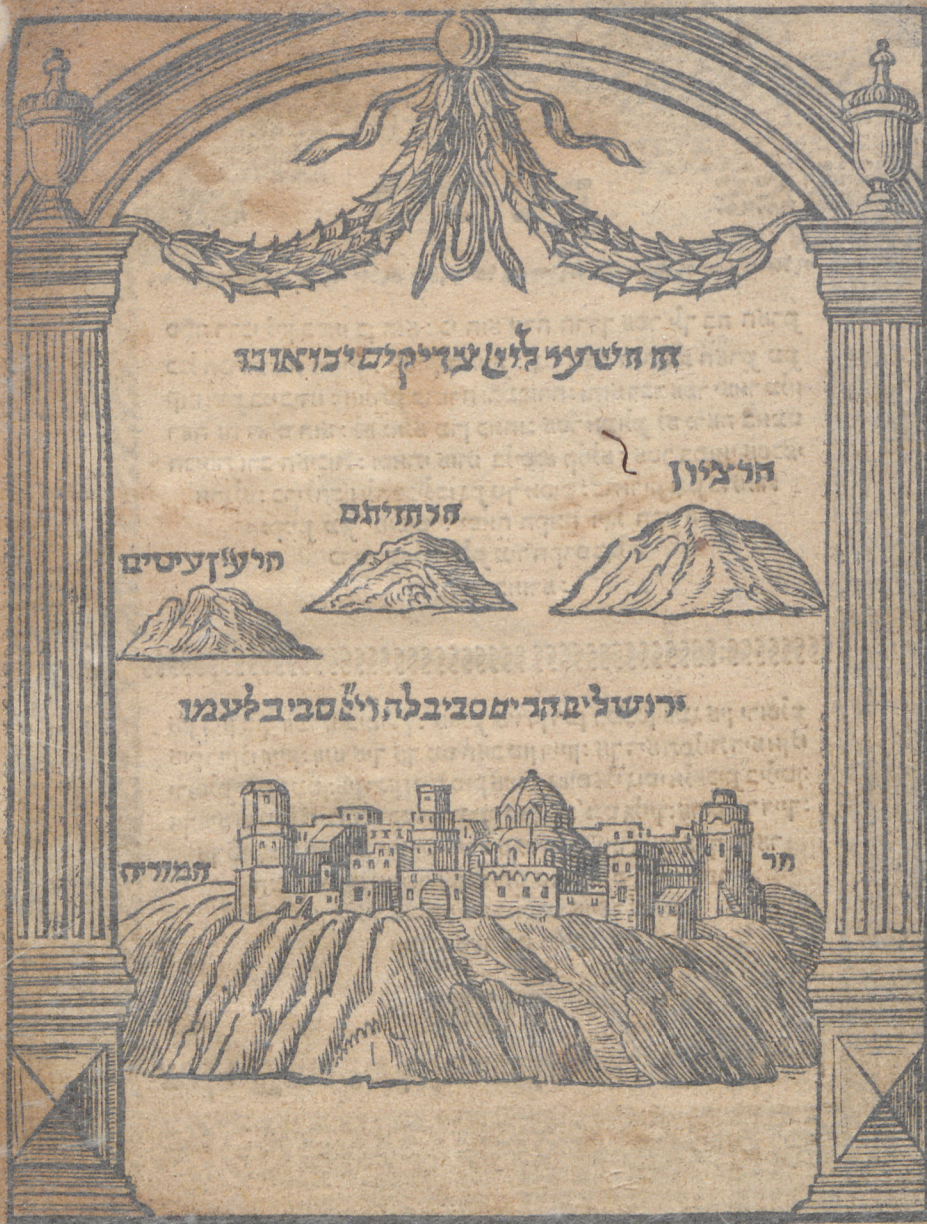 זה השער ליי צדיקים יבואו בו
הר ציון
הר הזיתים
הר עין עיטים
ירושלים הרים סביב לה ויי סביב לעמו
הר המוריה